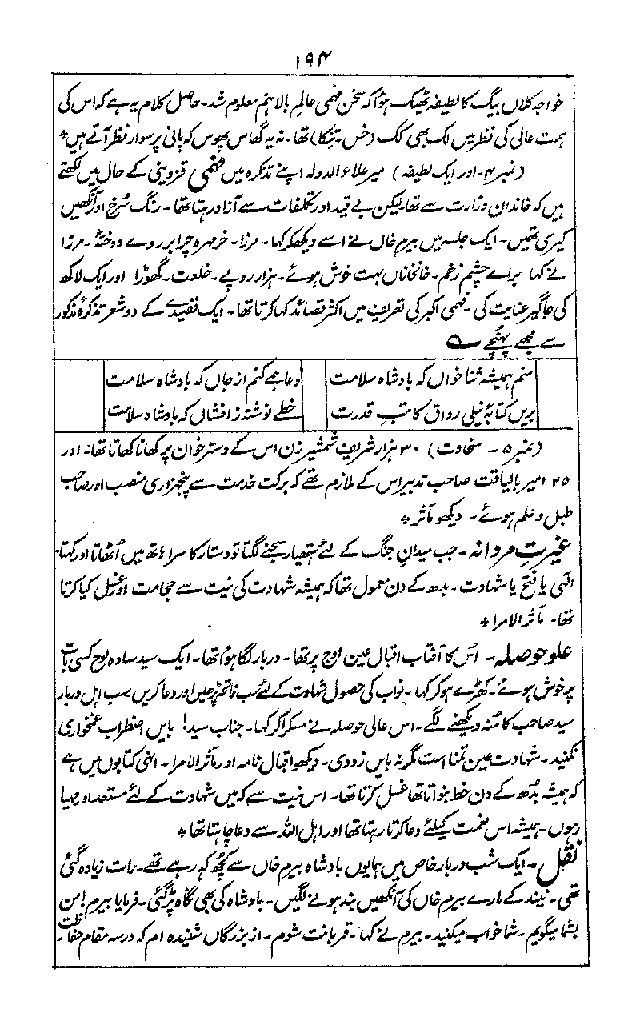 ۱۹۴
خواجہ کلاں بیگ کا لطیفہ ٹھیک ہوا کہ سخن فہمی عالم بالا ہم معلوم شد۔ حاصل کلام یہ ہے کہ اس کی
ہمت عالی کی نظر میں لک بھی لک (خس۔ تنکا) تھا۔ نہ یہ گھاس پھوس کہ پانی پر سوار نظر آتے ہیں *
(نمبر ۴۔ اور ایک لطیفہ) میر علاء الدولہ اپنے تذکرہ میں فہمی قزوینی کے حال میں لکھتے
ہیں کہ خاندان وزارت سے تھا لیکن بے قید اور تکلفات سے آزاد رہتا تھا۔ رنگ سرخ اور آنکھیں
کیری تھیں۔ ایک جلسہ میں بیرم خاں نے اسے دیکھ کر کہا۔ مرزا۔ خرمہرہ چرا بر روے دوختۂ۔ مرزا
نے کہا براے چشم زخم۔ خانخاناں بہت خوش ہوئے۔ ہزار روپے۔ خلعت۔ گھوڑا اور ایک لاکھ
کی جاگیر عنایت کی۔ فہمی اکبر کی تعریف میں اکثر قصائد کہا کرتا تھا۔ ایک قصیدے کے دو شعر تذکرۂ مذکور
سے مجھے پہنچے ؎
منم ہمیشہ ثنا خواں کہ بادشاہ سلامت دعا ہمے کنم از جاں کہ بادشاہ سلامت
بریں کتابۂ نیلی رواق کاتب قدرت خطے نوشتہ زر افشاں کہ بادشاہ سلامت
(نمبر ۵۔ سخاوت) ۳۰ ہزار شریف شمشیر زن اس کے دسترخوان پر کھانا کھاتا تھا۔ اور
۲۵ امیر بالیاقت صاحب تدبیر اس کے ملازم تھے کہ برکت خدمت سے پنجہزاری منصب اور صاحب
طبل و علم ہوئے۔ دیکھو مآثر *
غیرت مردانہ۔ جب میدان جنگ کے لئے ہتھیار سجنے لگتا تو دستار کا سرا ہاتھ میں اُٹھاتا اور کہتا۔
الٰہی یا فتح یا شہادت۔ بدھ کے دن معمول تھا کہ ہمیشہ شہادت کی نیت سے حجامت اور غسل کیا کرتا
تھا۔ مآثر الامرا *
علو حوصلہ۔ اس کا آفتاب اقبال عین اوج پر تھا۔ دربار لگا ہوا تھا۔ ایک سید سادہ لوح کسی بات
پر خوش ہوئے۔ کھڑے ہو کر کہا۔ نواب کی حصول شہادت کے لئے سب فاتحہ پڑھیں اور دعا کریں سب اہل دربار
سید صاحب کا منہ دیکھنے لگے۔ اس عالی حوصلہ نے مسکرا کر کہا۔ جناب سید! بایں اضطراب غمخواری
نکنید۔ شہادت عین تمنا است مگر نہ بایں زودی۔ دیکھو اقبال نامہ اور مآثر الامرا۔ انہی کتابوں میں ہے
کہ ہمیشہ بدھ کے دن خط بنواتا تھا غسل کرتا تھا۔ اس نیت سے کہ میں شہادت کے لئے مستعد اور مہیا
رہوں۔ ہمیشہ اس نعمت کیلئے دعا کرتا رہتا تھا اور اہل اللہ سے دعا چاہتا تھا *
نقل۔ ایک شب دربار خاص میں ہمایوں بادشاہ بیرم خاں سے کچھ کہہ رہے تھے۔ رات زیادہ گئی
تھی۔ نیند کے مارے بیرم خاں کی آنکھیں بند ہونے لگیں۔ بادشاہ کی بھی نگاہ پڑ گئی۔ فرمایا بیرم! من
بشما میگویم۔ شما خواب میکنید۔ بیرم نے کہا۔ قربانت شوم۔ از بزرگاں شنیدہ ام کہ در سہ مقام حفاظت